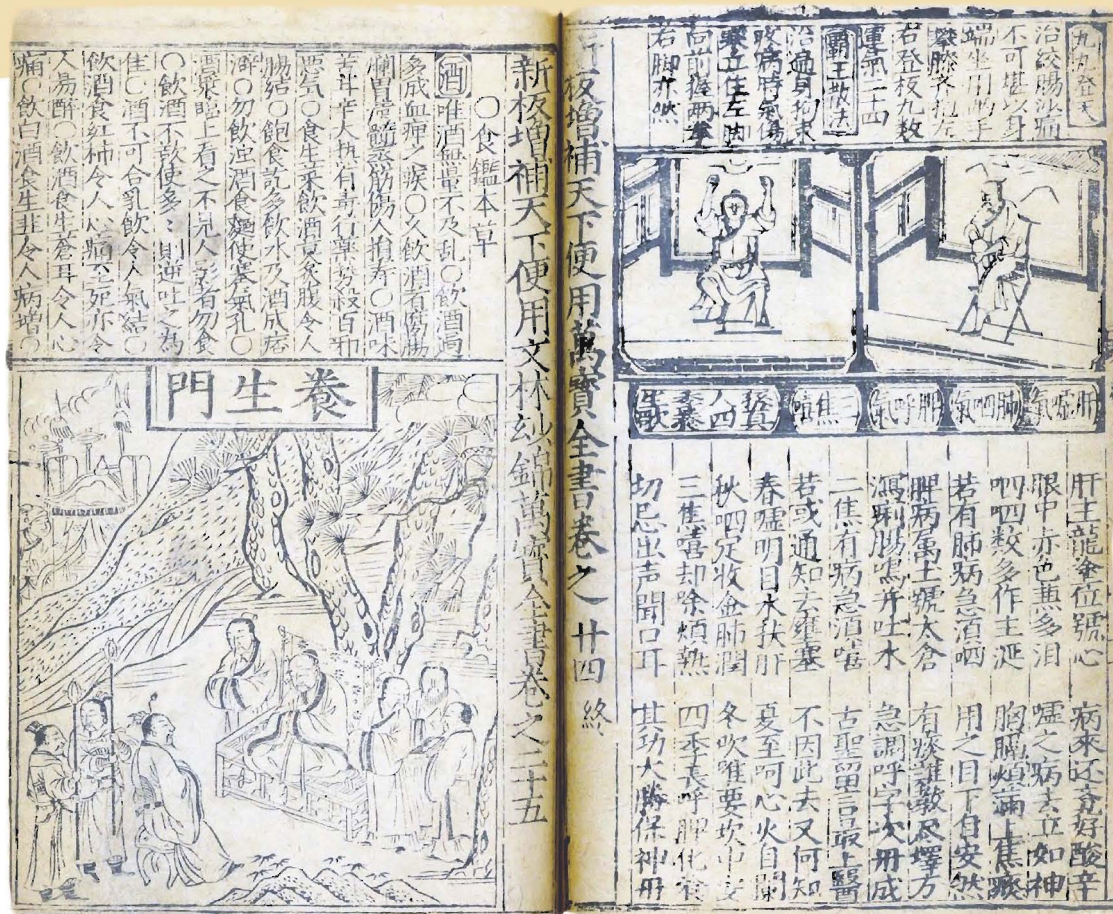 九九登天
治絞腸沙痛
不可堪以身
端坐用兩手
運氣二十四
霸王散法
治遍身拘束
疫痛時氣傷
寒立住左脚
向前握兩拳
右脚亦然
肝噓氣
肺呬氣
脾呼氣
三焦嘻
肝主龍塗位號心 病來还覔好酸辛
眼中亦也兼多泪 噓之病去立如神
呬呬數多作生涎 胸膈煩滿上焦痰
若有肺病急須呬 用之目下自安然
脾病属土號太倉 有痰難教尽擇方
瀉痢腸鳴并吐水 急調呼字次丹成
三焦有病急須嘻 古聖留言最上醫
若或通知去壅塞 不因此去又何知
春噓明目木扶肝 夏至呵心火自闌
秋呬定收金肺潤 冬吹唯要坎中安
三焦嘻却除煩熱 四季長呼脾化食
切忌出声聞口耳 其功尤勝保神丹
新板增補天下便用萬寳全書卷之廿四終
新板增補天下便用文林玅錦萬寳全書卷之三十五
○食鑑本草
酒 唯酒無量不及乱○飲酒過
多成血痹之痰○久飲酒者腐腸
爛胃潰髓蒸筋傷人損寿○酒味
苦甘辛大热有毒行藥势殺百邪
惡氣○食生菜飲酒莫炙腹令人
腸结○飽食訖多飲水及酒成痞
澼○勿飲渾酒食麵使塞氣孔○
酒漿臨上看之不見人影者勿食
○飲酒不欲使多多則速吐之為
佳○酒不可合乳飲令人氣結○
飲酒食红柿令人心痛至死亦令
人易醉○飲酒食生蒼耳令人心
痛○飲白酒食生韭令人病增○
養生門